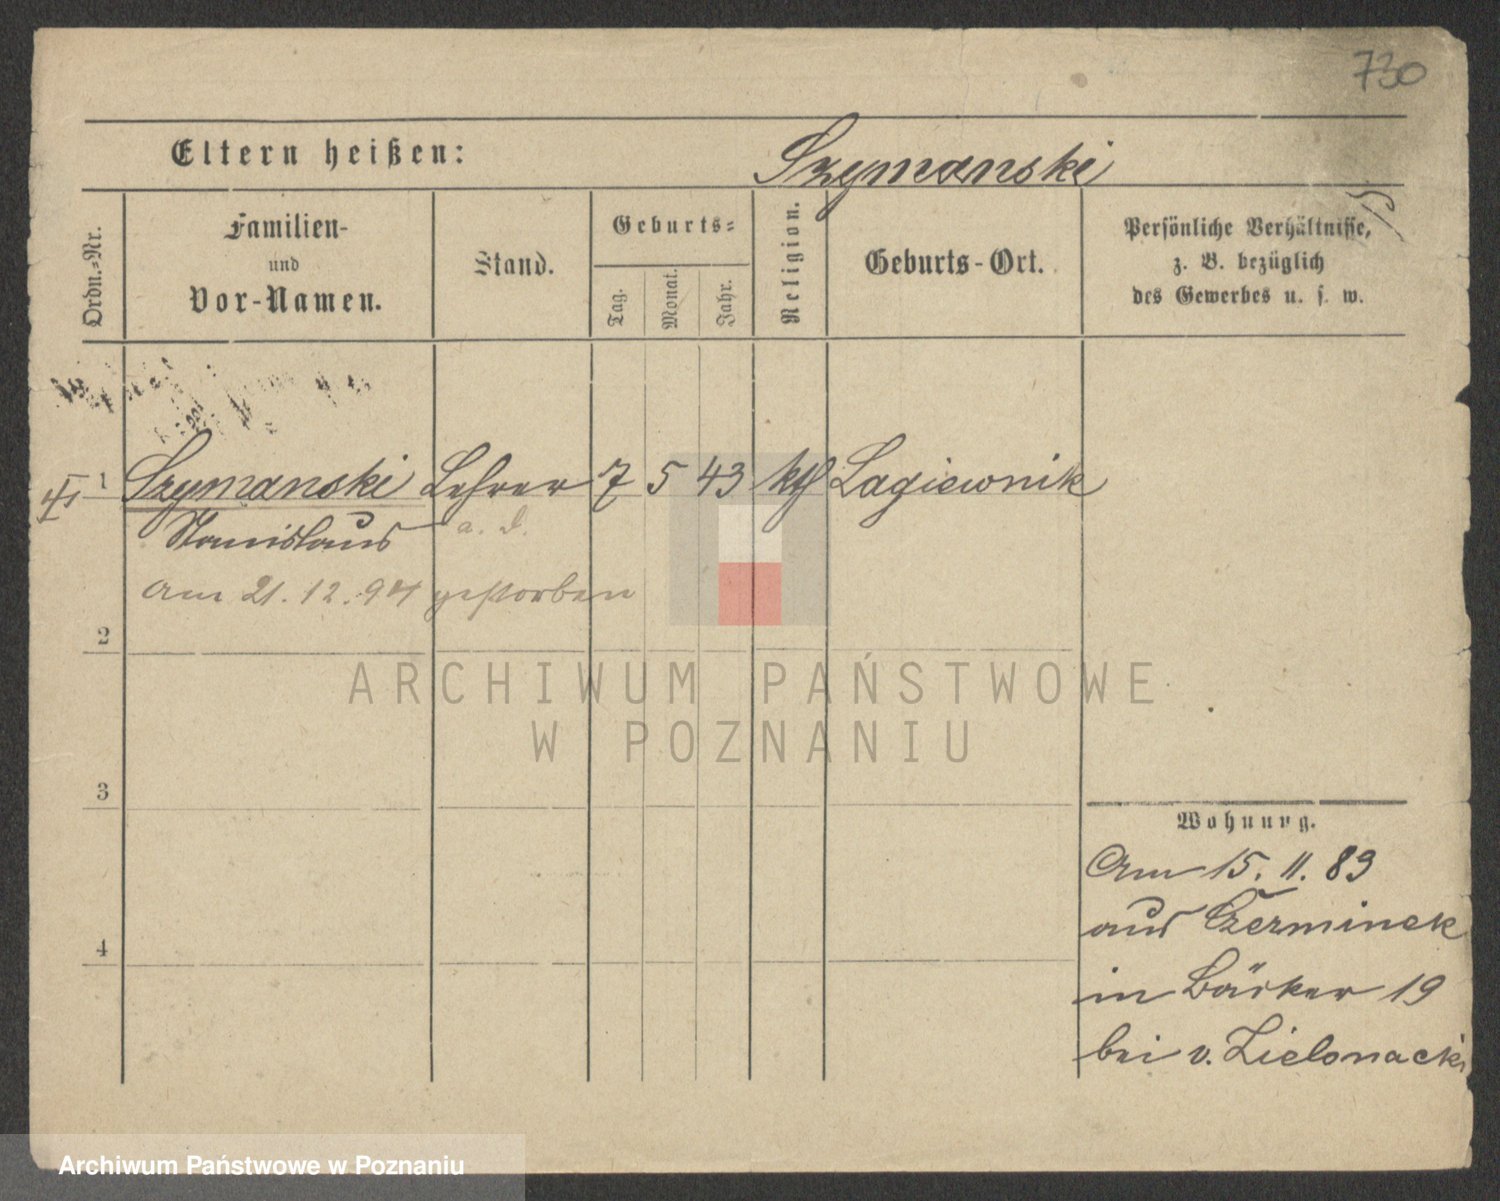 730
Eltern heißen:
Szymanski
Ordn.=Nr.
Familien-
und
Vor-Namen.
Stand.
Geburts=
Tag.
Monat.
Jahr.
Religion.
Geburts-Ort.
Persönliche Verhältnisse,
z. B. bezüglich
des Gewerbes u. s. w.
1 Szymanski Lehrer 7 5 43 kth Lagiewnik
Stanislaus a. D.
am 21.12.94 gestorben
2
ARCHIWUM PAŃSTWOWE
W POZNANIU
3
Wohnung.
Am 15. 11. 83
aus Czerminek
4
in Bäcker 19
bei v. Zielonacki
Archiwum Państwowe w Poznaniu